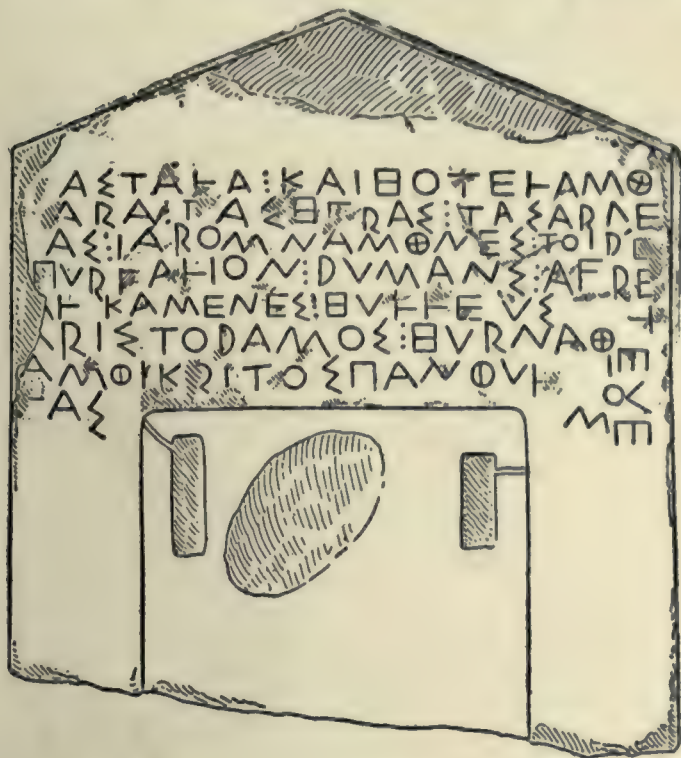 ΑΣΤΑΛΑ⋮ΚΑΙΗΟΤΕΛΑΜΟ
ΑΡΑ⋮ΤΑΣΗΕΡΑΣ⋮ΤΑΣΑΡΓΕ
ΑΣ⋮ΙΑΡΟΜΝΑΜΟΝΕΣ⋮ΤΟΙΔΕ
ΠΥΡϜΑΛΙΟΝ⋮ΔΥΜΑΝΣ⋮ΑϜΡΕ
ΤΕΥΕ
ΑΛΚΑΜΕΝΕΣ⋮ΗΥΛΛΕΥΣ
ΑΡΙΣΤΟΔΑΜΟΣ⋮ΗΥΡΝΑΘ
ΑΜΦΙΚΡΙΤΟΣΠΑΝΦΥΛ
ΑΣ